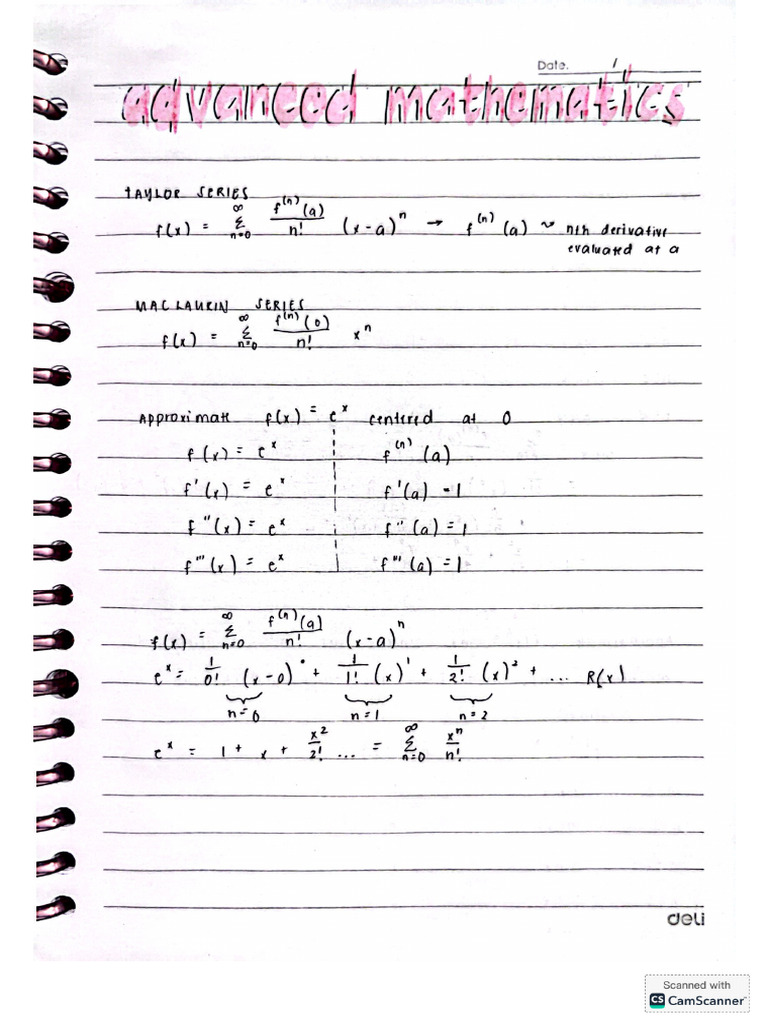 Date. / /
advanced mathematics
TAYLOR SERIES
f(x) = ∞ Σ n=0 f⁽ⁿ⁾(a) / n! (x-a)ⁿ → f⁽ⁿ⁾(a) ~ nth derivative
evaluated at a
MACLAURIN SERIES
f(x) = ∞ Σ n=0 f⁽ⁿ⁾(0) / n! xⁿ
Approximate f(x) = eˣ centered at 0
f(x) = eˣ f⁽ⁿ⁾(a)
f'(x) = eˣ f'(a) = 1
f''(x) = eˣ f''(a) = 1
f'''(x) = eˣ f'''(a) = 1
f(x) = ∞ Σ n=0 f⁽ⁿ⁾(a) / n! (x-a)ⁿ
eˣ = 1/0! (x-0)⁰ + 1/1! (x)¹ + 1/2! (x)² + ... R(x)
n=0 n=1 n=2
eˣ = 1 + x + x²/2! ... = ∞ Σ n=0 xⁿ/n!
deli
Scanned with
CS CamScanner